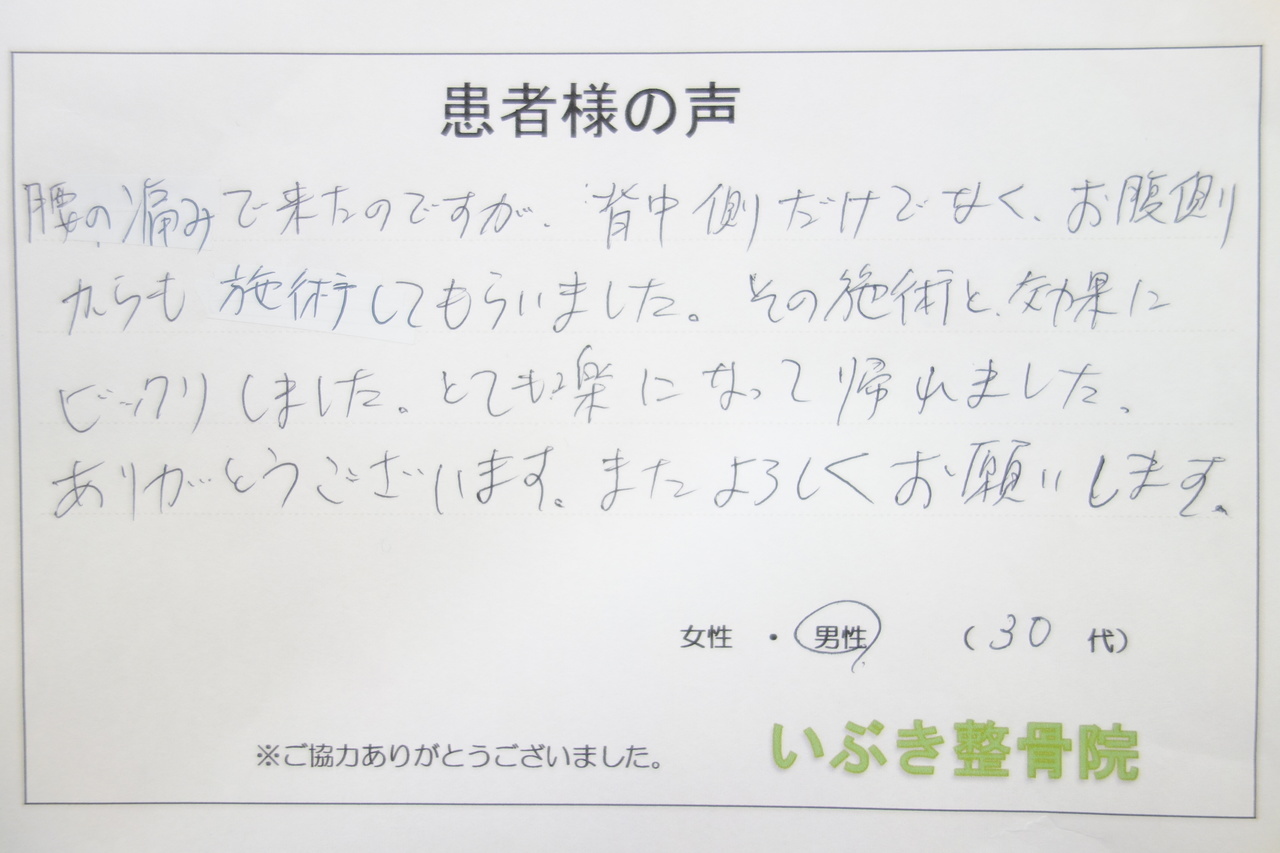 患者様の声
腰の痛みで来たのですが、背中側だけでなく、お腹側
からも施術してもらいました。その施術と、効果に
ビックリしました。とても楽になって帰れました。
ありがとうございます。またよろしくお願いします。
女性 ・ 男性 （30 代）
※ご協力ありがとうございました。
いぶき整骨院